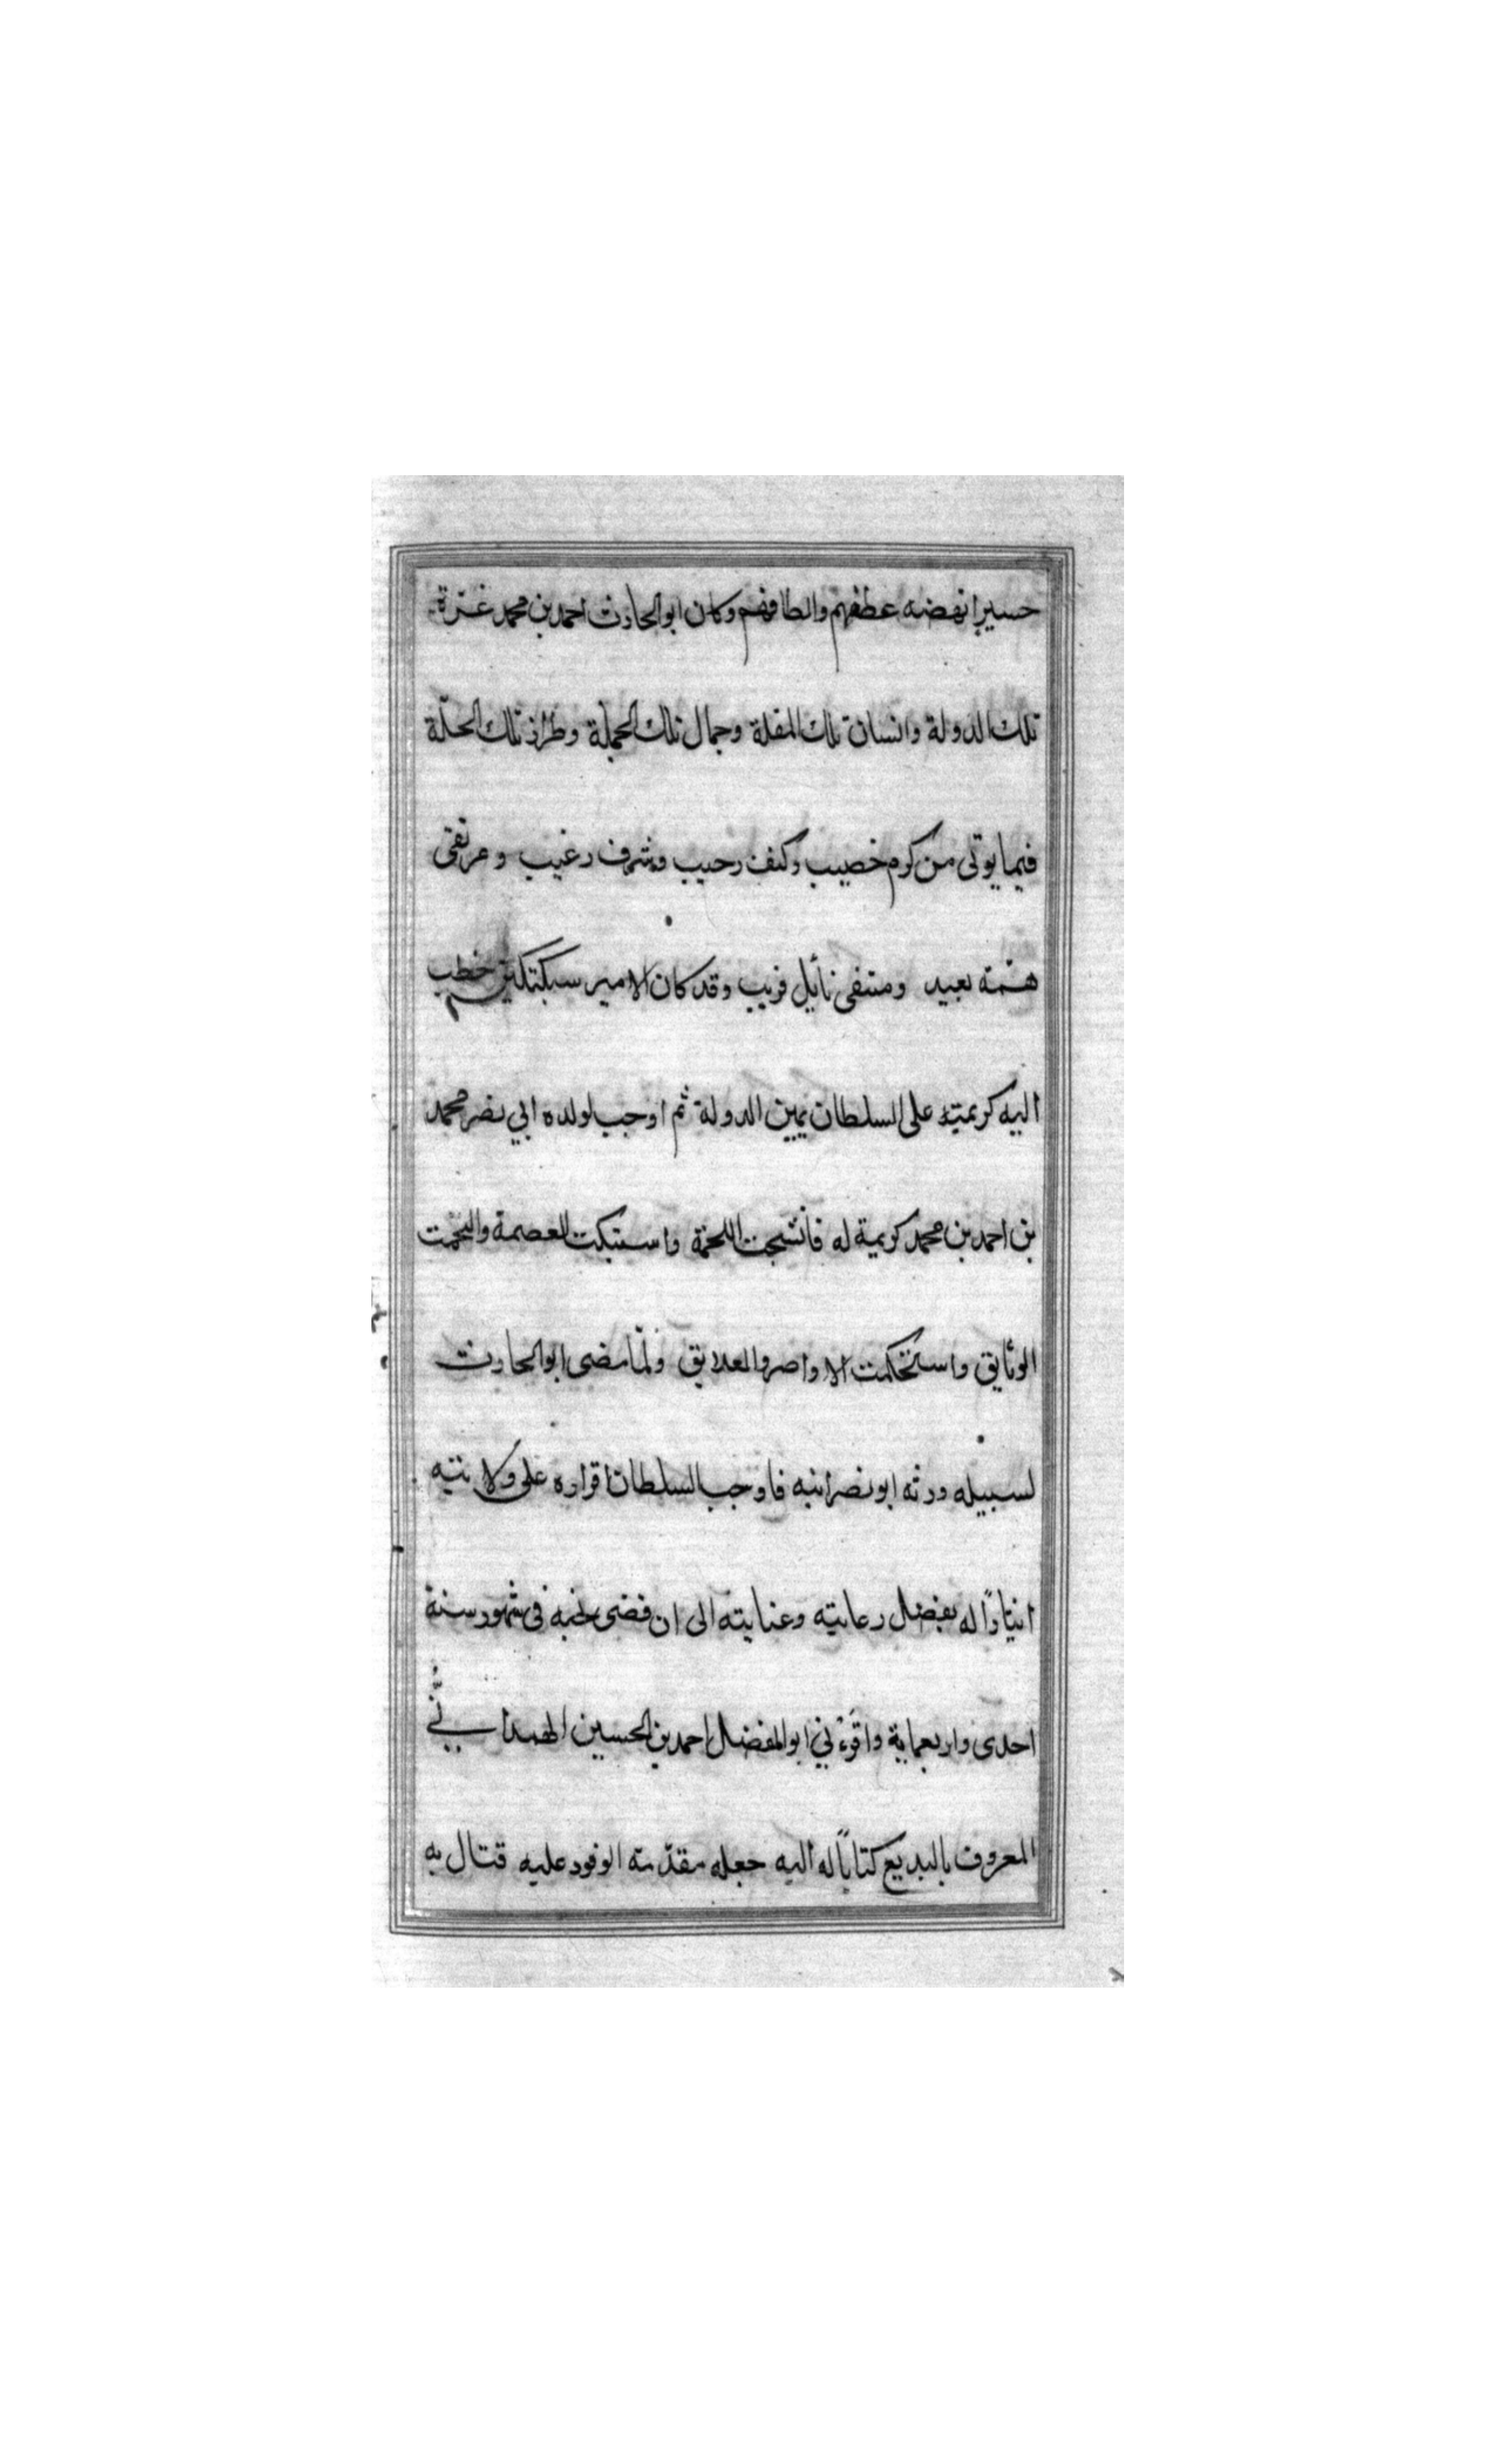 حسيرا نهضه عطفهم والطافهم وكان ابو الحارث احمد بن محمد غرة
تلك الدولة وانسان تلك المقلة وجمال تلك الجملة وطراز تلك الحلّة
فيما يوتى من كرم خصيب وكنف رحيب وشرف رغيب ومرتقى
همّته بعيد ومنتفى نأيل قريب وقد كان الامير سبكتكين خطب
اليه كريمته على السلطان يمين الدولة ثم اوجب لولده ابي نصر محمد
بن احمد بن محمد كريمة له فانشجت اللحمة واستبكت العصمة والتحمت
الوثايق واستحكمت الاواصر والعلايق ولمّا مضى ابو الحارث
لسبيله ورثه ابو نصر ابنه فاوجب السلطان اقراره على ولايته
ايثارًا له بفضل رعايته وعنايته الى ان قضى نحبه فى شهور سنة
احدى واربعماية واقرءني ابو الفضل احمد بن الحسين الهمداني
المعروف بالبديع كتابًا له اليه جعله مقدّمته الوفود عليه قتال به